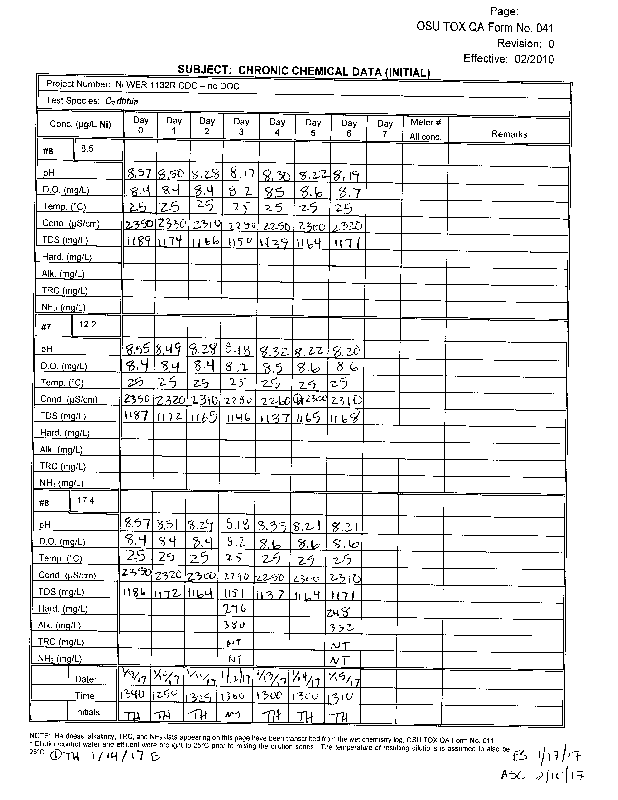 Page:
OSU TOX QA Form No. 041
Revision: 0
Effective: 02/2010
SUBJECT: CHRONIC CHEMICAL DATA (INITIAL)
Project Number: Ni WER 1132R CDC – no DOC
Test Species: C. dubia
Conc. (µg/L Ni) Day 0 Day 1 Day 2 Day 3 Day 4 Day 5 Day 6 Day 7 Meter # All conc. Remarks
8.5
pH 8.57 8.50 8.28 8.17 8.30 8.22 8.19
D.O. (mg/L) 8.4 8.4 8.4 8.2 8.5 8.6 8.7
Temp. (°C) 25 25 25 25 25 25 25
Cond. (µS/cm) 2350 2330 2310 2290 2250 2300 2320
TDS (mg/L) 1189 1174 1166 1150 1129 1164 1171
Hard. (mg/L)
Alk. (mg/L)
TRC (mg/L)
NH₃ (mg/L)
#7 12.2
pH 8.55 8.49 8.28 8.18 8.32 8.22 8.20
D.O. (mg/L) 8.4 8.4 8.4 8.2 8.5 8.6 8.6
Temp. (°C) 25 25 25 25 25 25 25
Cond. (µS/cm) 2350 2320 2310 2290 2260 2300 2310
TDS (mg/L) 1187 1172 1165 1146 1137 1165 1168
Hard. (mg/L)
Alk. (mg/L)
TRC (mg/L)
NH₃ (mg/L)
#8 17.4
pH 8.57 8.51 8.29 8.18 8.33 8.21 8.21
D.O. (mg/L) 8.4 8.4 8.4 8.2 8.6 8.6 8.6
Temp. (°C) 25 25 25 25 25 25 25
Cond. (µS/cm) 2350 2320 2300 2290 2250 2300 2310
TDS (mg/L) 1186 1172 1164 1151 1137 1164 1171
Hard. (mg/L) 276 248
Alk. (mg/L) 380 332
TRC (mg/L) NT NT
NH₃ (mg/L) NT NT
Date: 1/13/17 1/14/17 1/15/17
Time 1340 1250 1325 1300 1300 1300 1310
Initials TH TH TH TH TH TH
NOTE: Hardness, alkalinity, TRC, and NH₃ data appearing on this page have been transcribed from the wet chemistry log, OSU TOX QA Form No. 011
Dilution/control water and effluent were brought to 25°C prior to mixing the dilution series. The temperature of resulting dilutions is assumed to also be
25°C. ① TH 1/14/17 E 1/17/17